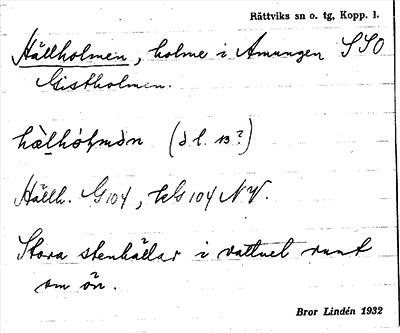 Rättviks sn o. tg, Kopp. l.
Hällholmen, holme i Amungen SSO
Gistholmen.
hä̀lhólmən (d.l. B?)
Hällh. G104, KG 104 NV.
Stora stenhällar i vattnet runt
om ön.
Bror Lindén 1932